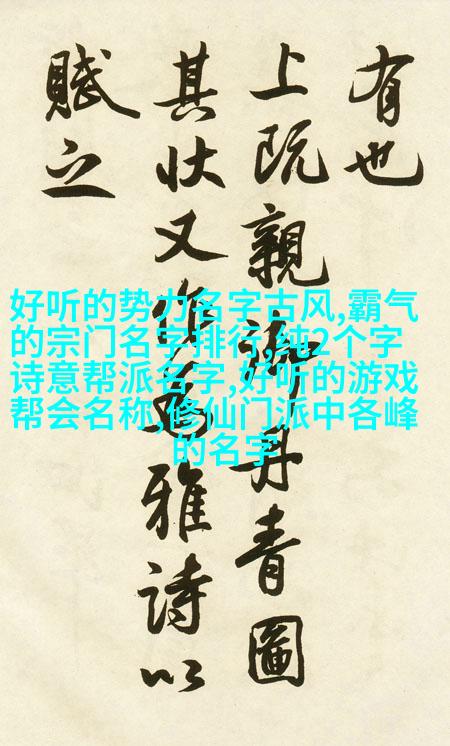 有也
上既親御丹青圖
其状又作為雅詩以
賦之
好听的势力名字古风,霸气
的宗门名字排行,纯2个字
诗意帮派名字,好听的游戏
帮会名称,修仙门派中各峰
的名字